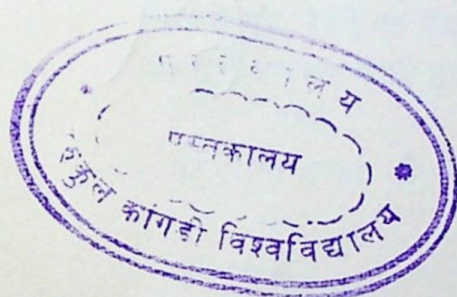 पुस्तकालय
कांगड़ी विश्वविद्यालय